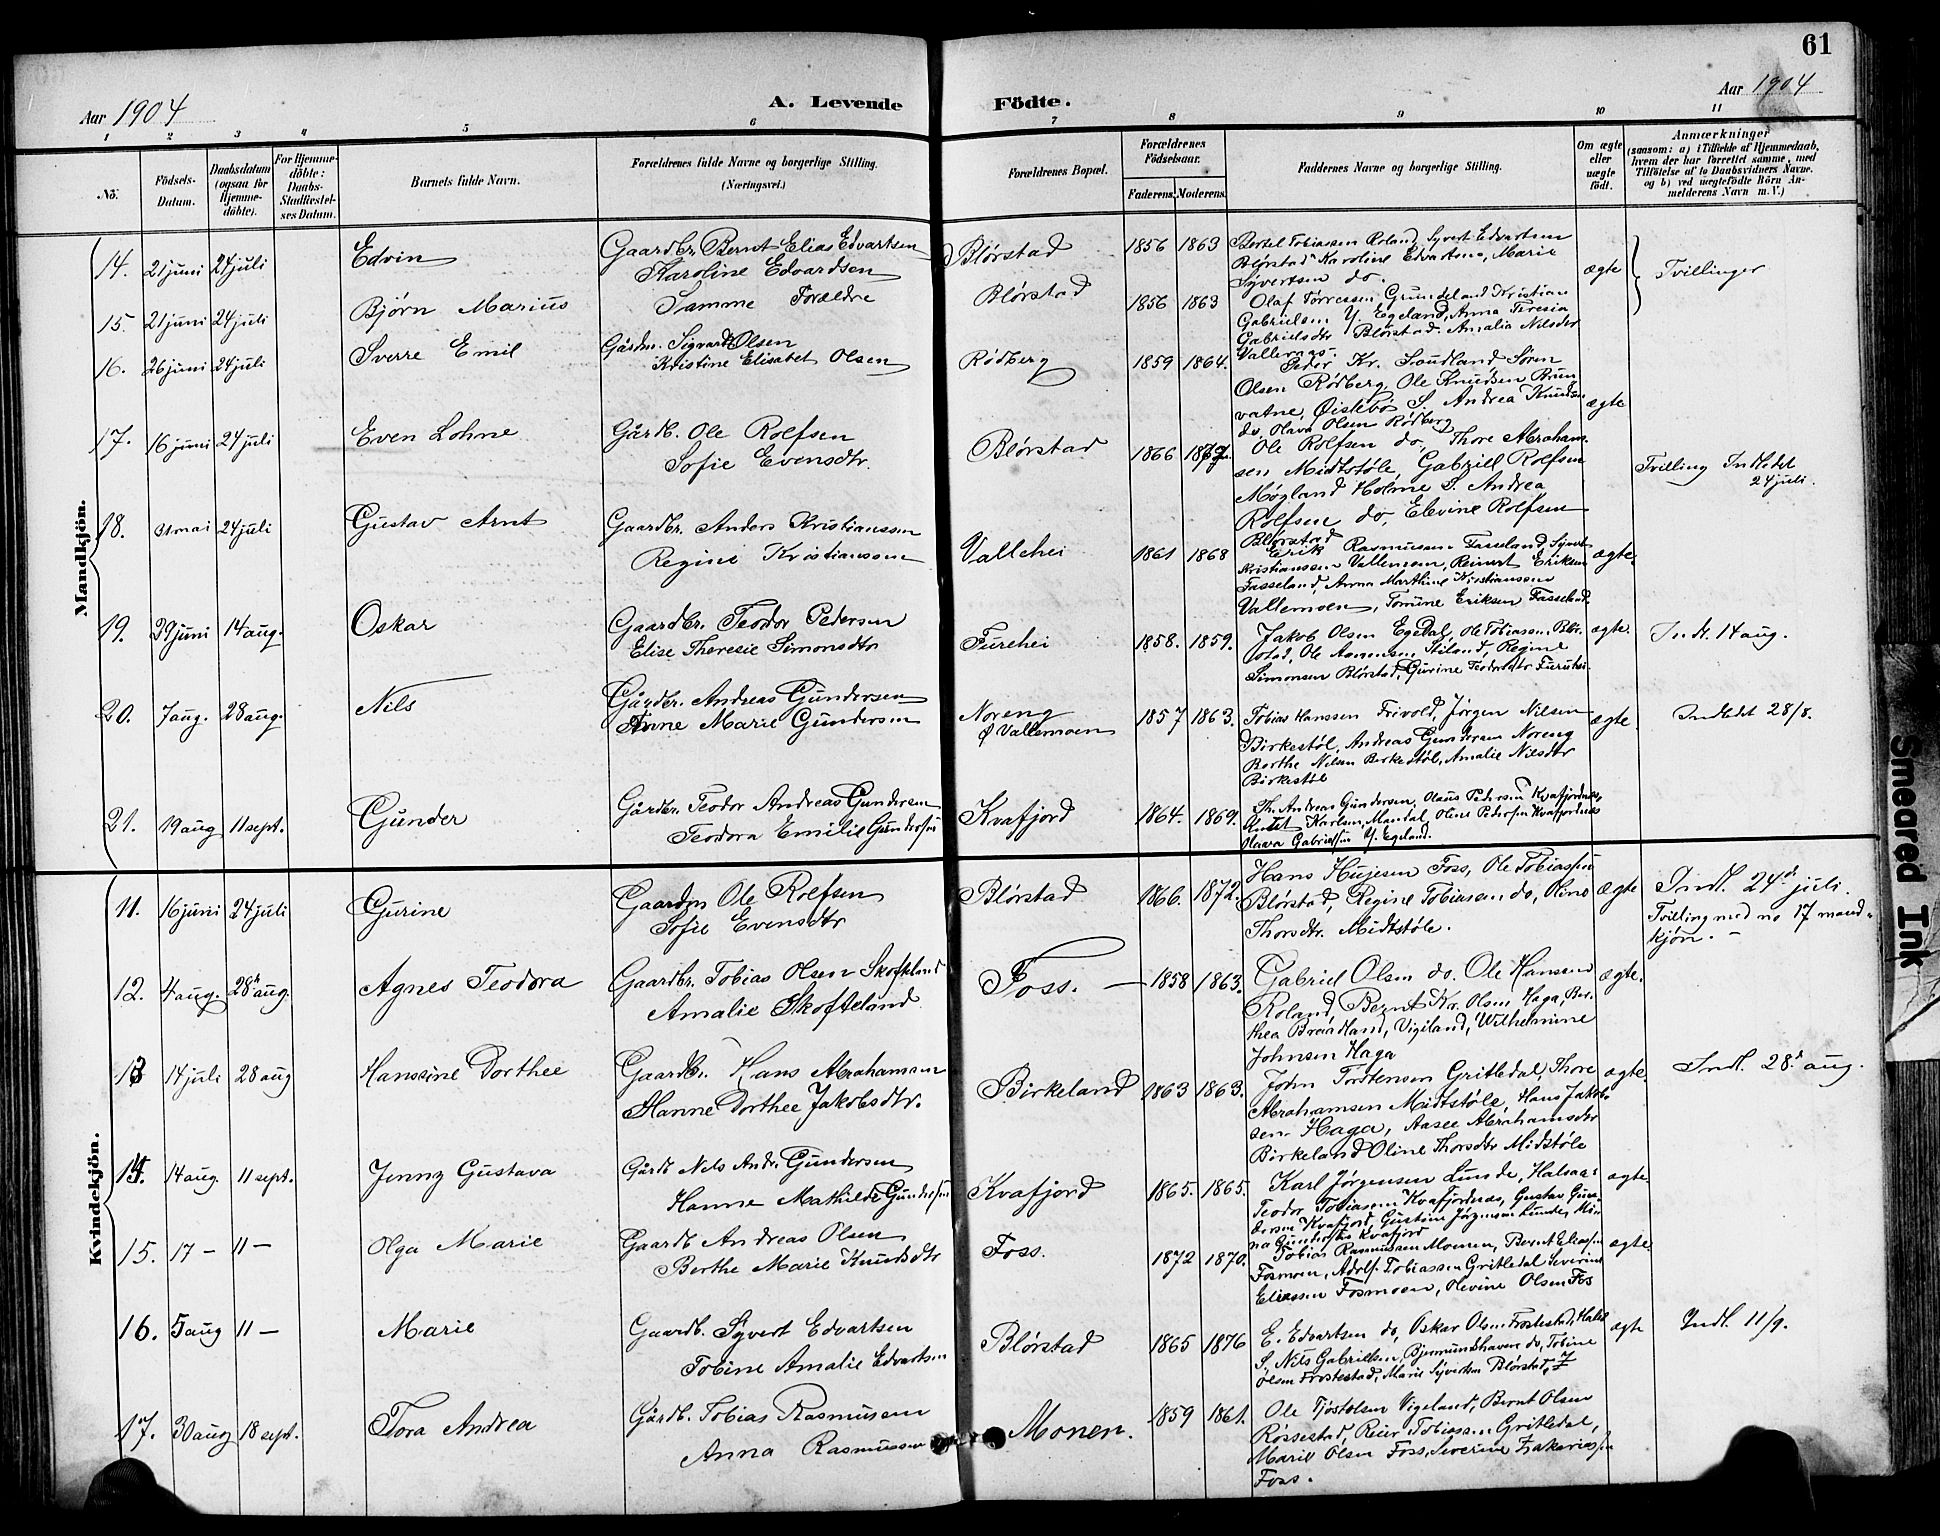 61
Aar 1904
A. Levende Födte.
Aar 1904
1 2 3 4 5 6 7 8 9 10 11
No. Födsels-Datum. Daabsdatum (ogsaa for Hjemme-döbte). For Hjemme-döbte: Daabs-Stadfæstel-ses Datum. Barnets fulde Navn. Forældrenes fulde Navne og borgerlige Stilling. (Næringsvei.) Forældrenes Bopæl. Forældrenes Födselsaar. Faderens. Moderens. Faddernes Navne og borgerlige Stilling. Om ægte eller uægte födt. Anmærkninger (saasom: a) i Tilfælde af Hjemmedaab, hvem der har forrettet samme, med Tilföielse af to Daabsvidners Navne. og b) ved uægtefödte Börn An-melderens Navn m. V.)
Mandkjön.
14. 21 juni 24 juli Edvin Gaardbr. Bernt Elias Edvartsen Karoline Edvardsen Blørstad 1856 1863 Bertel Tobiassen Roland, Syvert Edvartsen Blørstad Karoline Edvartsen, Marie Syvertsen do. ægte Tvillinger
15. 21 juni 24 juli Bjørn Marius Samme Forældre Blørstad 1856 1863 Olaf Tørressen Grundeland Kristian Gabrielsen Y. Egeland, Anna Teresia Gabrielsdtr Blørstad Amalia Nilsdtr Vallernas.
16. 26 juni 24 juli Sverre Emil Gårdm. Sigvardt Olsen Kristine Elisabet Olsen Rødberg 1859 1864. Peder Kr. Soudland Søren Olsen Rødberg, Ole Knudsen Brun-vatne, Øislebø S. Andrea Knudsen do, Olava Olsen Rødberg ægte
17. 16 juni 24 juli Even Lohne Gårdb. Ole Rolfsen Sofie Evensdtr. Blørstad 1866 Ole Rolfsen do, Thore Abraham-sen Midtstøle, Gabriell Rolfsen Møgland Holme S. Andrea Rolfsen do, Elevine Rolfsen Blørstad Tvilling Indledet 24 juli.
18. 31 mai 24 juli Gustav Arnt Gaardbr. Anders Kristianssen Regine Kristianssen Vallehei 1861 1868 Erik Rasmussen Fasseland, Syvert Kristianssen Vallemoen, Reinert Eriksen Fasseland, Anna Marthine Kristianssen Vallemoen, Tomine Eriksen Fasseland. ægte.
19. 29 juni 14 aug. Oskar Gaardbr. Teodor Pedersen Elise Theresie Simonsdtr Furehei 1858. 1859. Jakob Olsen Egedal, Ole Tobiassen Blør-stad, Ole Aanensen Stiland, Regine Simonsen Blørstad, Gurine Teodorsdtr Furuhei ægte. Indl. 14 aug.
20. 7 aug. 28 aug. Nils Gårdbr. Andreas Gundersen Anne Marie Gundersen Noreng Vallemoen 1857 1863. Tobias Hanssen Frivold, Jørgen Nilsen Birkestøl, Andreas Gundersen Noreng Berthe Nilsen Birkestøl, Amalie Nilsdtr Birkestøl ægte. Indledet 28/8.
21. 19 aug 11 sept. Gunder Gårdbr. Teodor Andreas Gundersen Teodora Emilie Gundersen Kvafjord 1864. 1869. Th. Andreas Gundersen, Olaus Pedersen Kvafjordnes, Karlsen Mandal, Oline Pedersen Kvafjordnes Olava Gabrielsen Y. Egeland.
Kvindekjön.
11. 16 juni 24 juli Gurine Gaardm Ole Rolfsen Sofie Evensdtr Blørstad 1866. 1872. Hans Hujesen Foss, Ole Tobiassen Blørstad, Regine Tobiasen do, Oline Thorsdtr. Midtstøle. ægte Indl. 24d juli. Tvilling med no 17 mand-kjøn. -
12. 4 aug. 28de aug. Agnes Teodora Gaardbr. Tobias Olsen Skofteland Amalie Skofteland Foss. - 1858 1863. Gabriel Olsen do. Ole Hansen Roland, Bernt Kr. Olsen Haga, Ber-thea Breidland, Vigiland, Wilhelmine Johnsen Haga ægte.
13 14 juli 28 aug Hanssine Dorthee Gaardbr. Hans Abrahamsen Hanne Dorthee Jakobsdtr. Birkeland 1863 1863. John Tordtensen Gritledal, Thore Abrahamsen Midtstøle, Hans Jakob-sen Haga, Aasee Abrahamsdtr Birkeland Oline Thorsdtr Midtstøle ægte. Indl. 28d aug.
14. 14 aug. 11 sept. Jenny Gustava Gårdb Nils Andr. Gundersen Hanne Mathilde Gundersen Kvafjord 1865. 1865. Karl Jørgensen Lunde, Halsaa: Teodor Tobiasen Kvafjordnæs, Gustav Gun-dersen Kvafjord, Gustine Jørgensen Lunde, Mi-na Gundersen Kvafjord ægte.
15. 17 - 11 - Olga Marie Gaardb Andreas Olsen Berthe Marie Knudsdtr Foss. 1872 1870. Tobias Rasmussen Monen, Bernt Eliassen Fosmoen, Adolf Tobiassen Gritledal Severine Eliassen Fosmoen, Olevine Olsen Fos ægte.
16. 5 aug 11 - Marie Gaardb. Syvert Edvartsen Tobine Amalie Edvartsen Blørstad 1865 1876 E. Edvartsen do, Oskar Olsen Frostestad, Halse S. Nils Gabrielsen, Bjermundshaven do, Tobine Olsen Frostestad, Marie Syvertsen Blørstad, ægte Indl. 11/9.
17. 30 aug 18 sept. Tora Andrea Gårdb. Tobias Rasmusen Anna Rasmussen Monen. 1859 1861. Ole Tjostolsen Vigeland, Bernt Olsen Røssestad, Reier Tobiassen Gritledal, Marie Olsen Foss, Severine Zakariassen Foss.
Smeared Ink